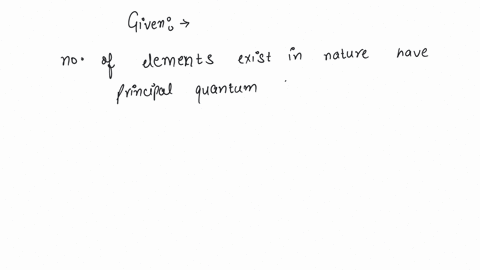 Given:→
no. of elements exist in nature have
principal quantum